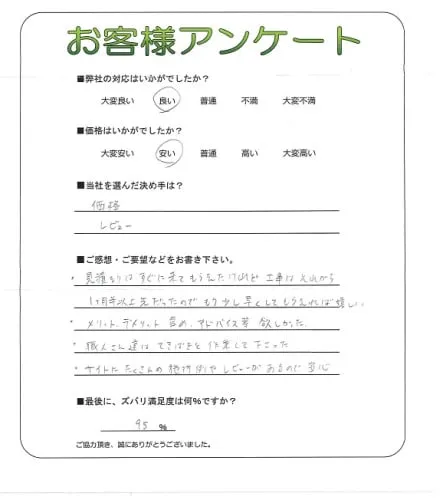 お客様アンケート
■弊社の対応はいかがでしたか？
大変良い 良い 普通 不満 大変不満
■価格はいかがでしたか？
大変安い 安い 普通 高い 大変高い
■当社を選んだ決め手は？
価格
レビュー
■ご感想・ご要望などをお書き下さい。
・見積もりはすぐに来てもらえたけれど 工事はそれから
1ヶ月半以上先だったので もう少し早くしてもらえれば嬉しい。
・メリット、デメリット 含め、アドバイス等 欲しかった。
・職人さん達は てきぱきと 作業して下さった
・サイトに たくさんの 施工例や レビューが あるので 安心
■最後に、ズバリ満足度は何%ですか？
95 %
ご協力頂き、誠にありがとうございました。